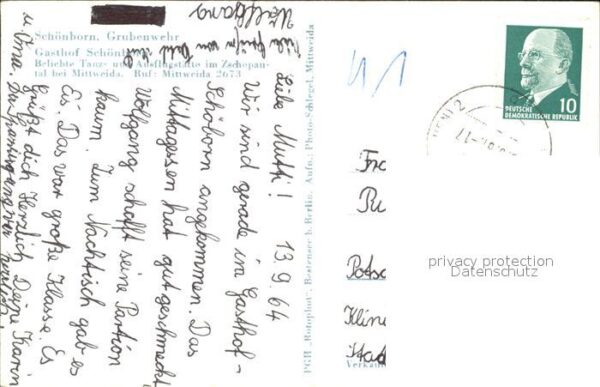 Schönborn, Grubenwehr
Gasthof Schönborn
Beliebte Tanz- und Ausflugsstätte im Zschopau-
tal bei Mittweida. Ruf: Mittweida 2673
Liebe Mutti! 13.9.64
Wir sind gerade im Gasthof-
Schöborn angekommen. Das
Mittagessen hat gut geschmeckt
Wolfgang schafft seine Portion
kaum. Zum Nachtisch gab es
Eis. Das war große Klasse. Es
grüßt dich Herzlich Deine Karin
u. Oma.
Viele Grüße von
Wolfgang
PGH „Rotophot“, Bestensee b. Berlin. Aufn.: Photo-Schlegel, Mittweida
DEUTSCHE
DEMOKRATISCHE REPUBLIK
10
Potsc
Kline
Stad
Verkau
privacy protection
Datenschutz